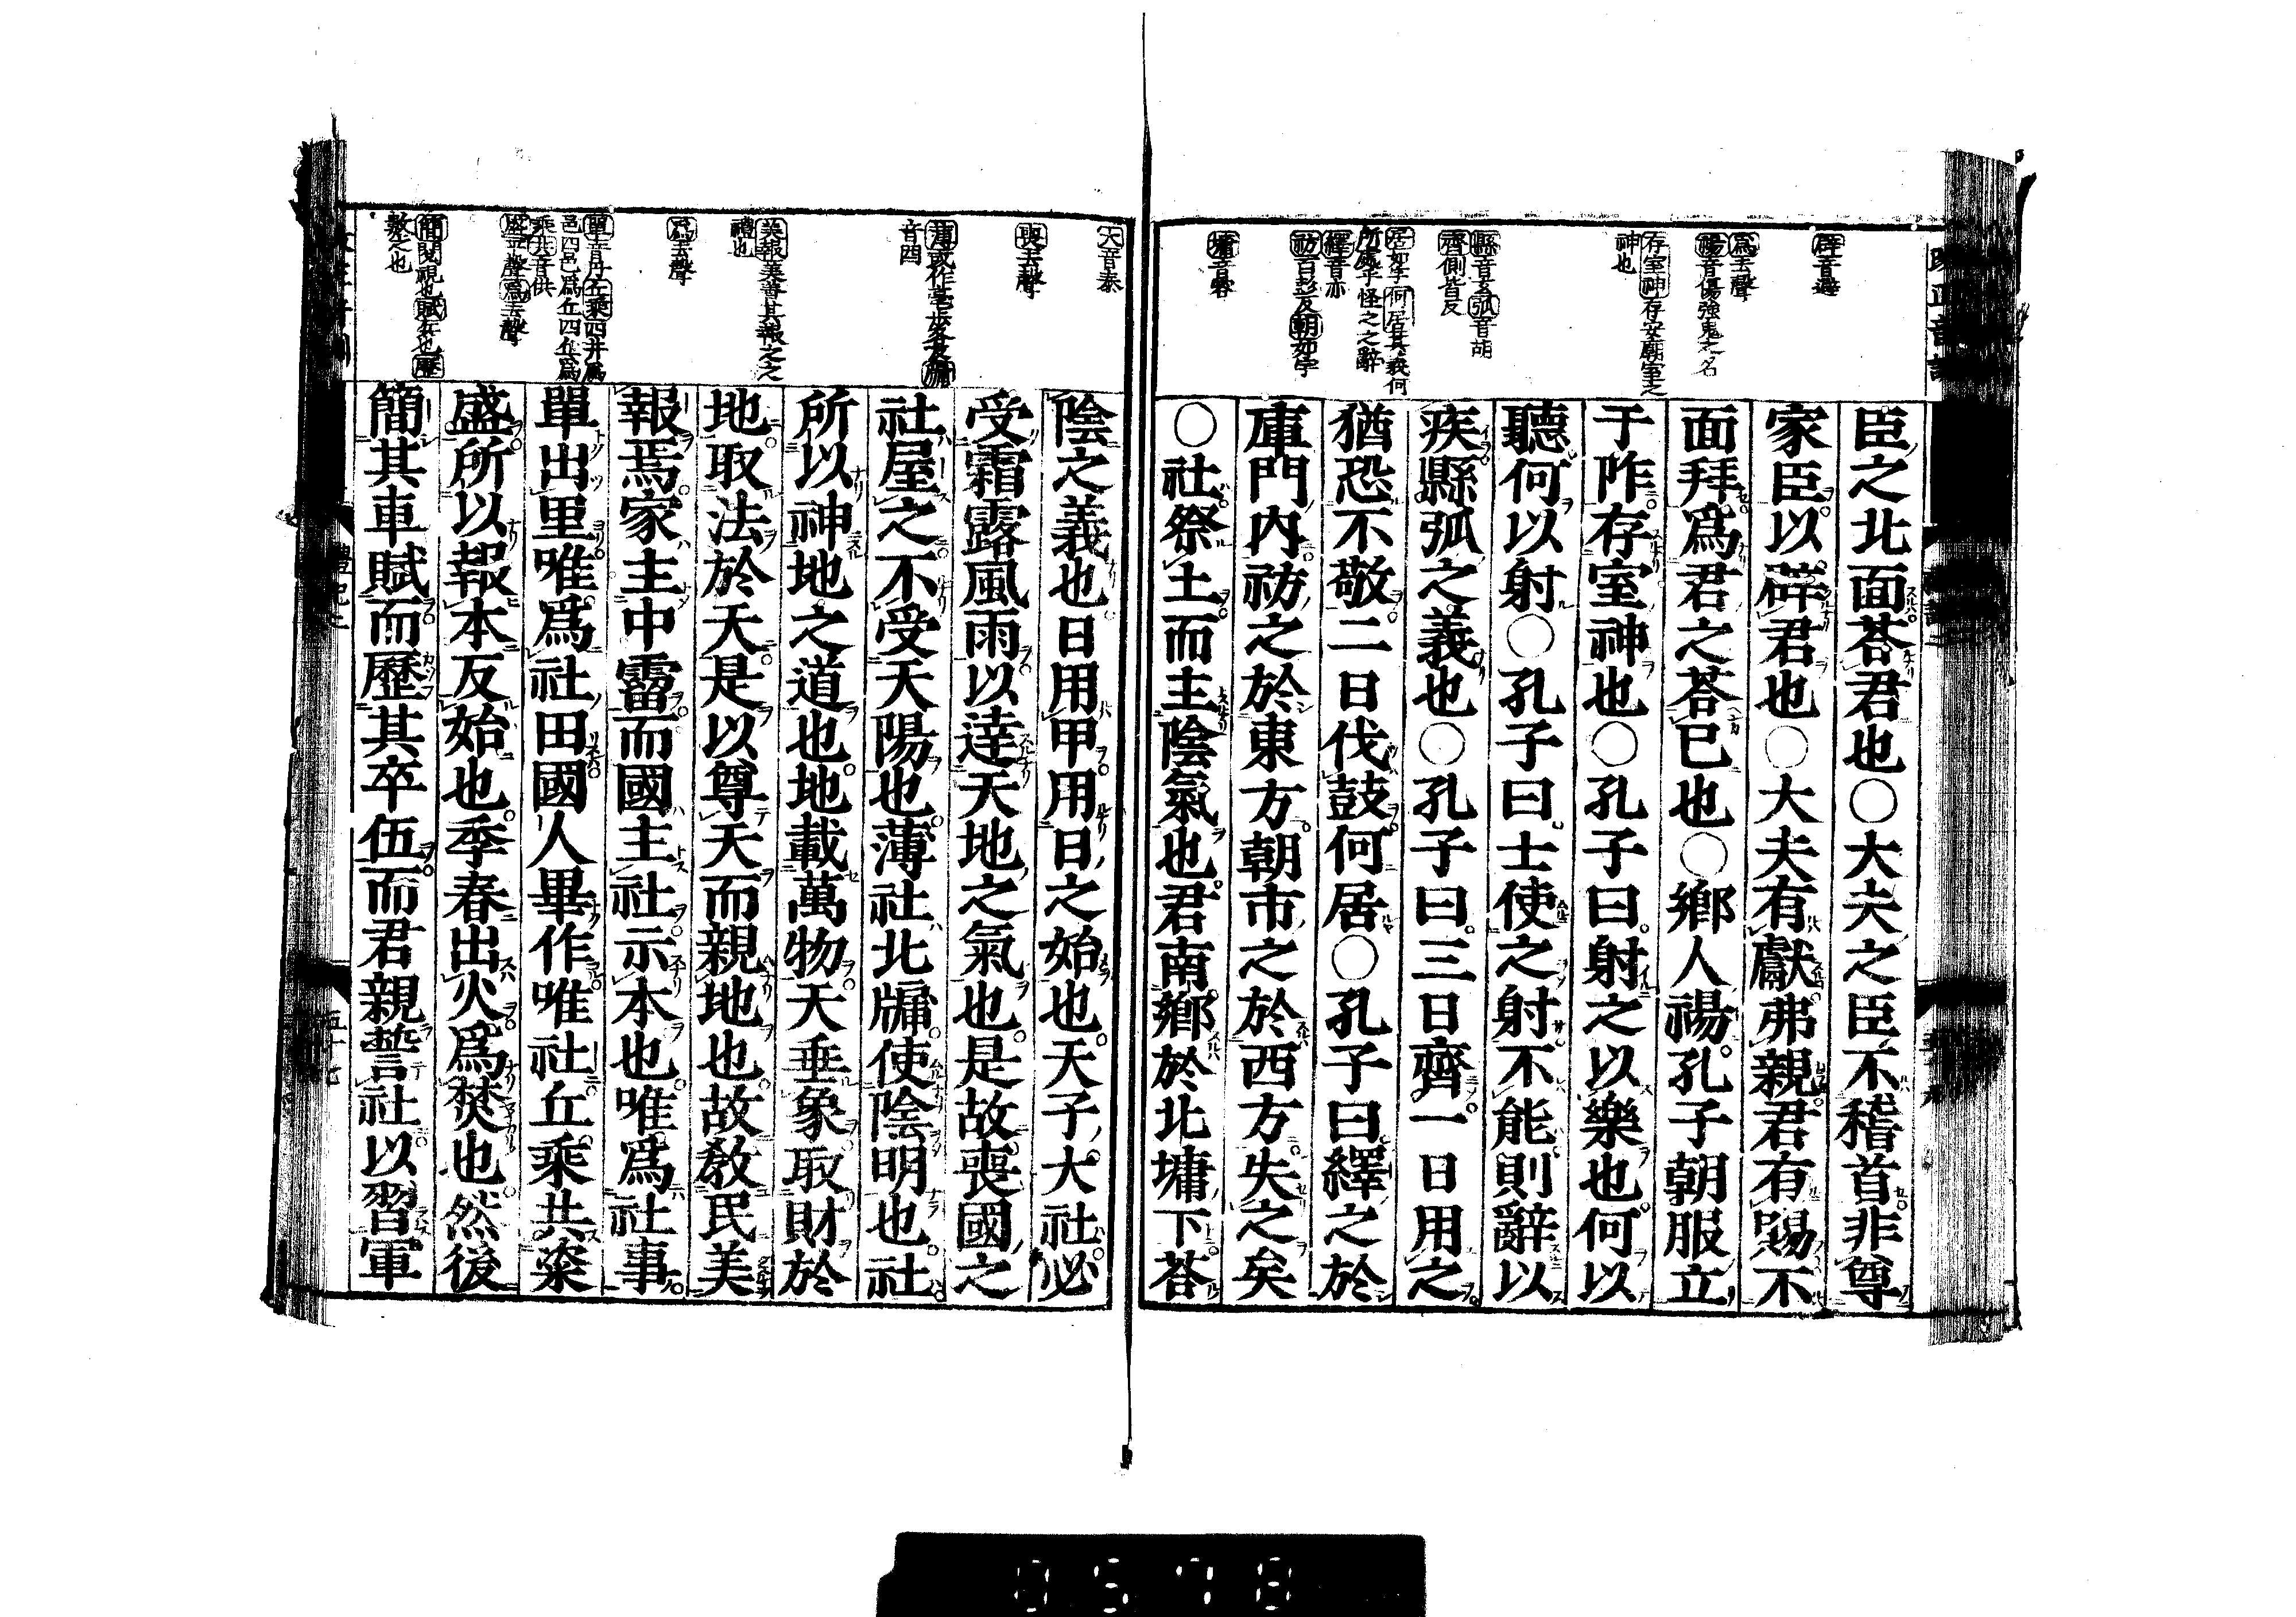 辟音避
爲去聲
禓音傷強鬼之名
存室神存安廟室之
神也
縣音玄弧音胡
齊側皆反
居如字何居其義何
所處乎怪之之辭
繹音亦
祊百彭反朝如字
墉音容
臣之北面荅君也○大夫之臣不稽首非尊
家臣以辟君也○大夫有獻弗親君有賜不
面拜爲君之荅已也○鄉人禓孔子朝服立
于阼存室神也○孔子曰射之以樂也何以
聽何以射○孔子曰士使之射不能則辭以
疾縣弧之義也○孔子曰三日齊一日用之
猶恐不敬二日伐鼓何居○孔子曰繹之於
庫門內祊之於東方朝市之於西方失之矣
○社祭土而主陰氣也君南鄉於北墉下荅
大音泰
喪去聲
薄或作亳步各反牖
音酉
美報美善其報之之
禮也
爲去聲
單音丹丘乘四井爲
邑四邑爲丘四丘爲
乘共音供
盛平聲爲去聲
簡閱視也賦兵也歷
數之也
陰之義也日用甲用日之始也天子大社必
受霜露風雨以達天地之氣也是故喪國之
社屋之不受天陽也薄社北牖使陰明也社
所以神地之道也地載萬物天垂象取財於
地取法於天是以尊天而親地也故敎民美
報焉家主中霤而國主社示本也唯爲社事
單出里唯爲社田國人畢作唯社丘乘共粢
盛所以報本反始也季春出火爲焚也然後
簡其車賦而歷其卒伍而君親誓社以習軍
0578